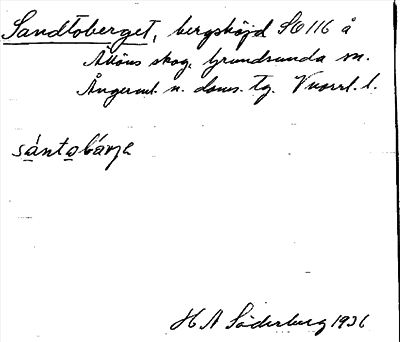 Sandtoberget, bergshöjd SO 116 å
skog, Grundsunda sn.
Ångerml. n. doms. Tg. Vnorrl. l.
sántabárje
H A Söderberg 1936